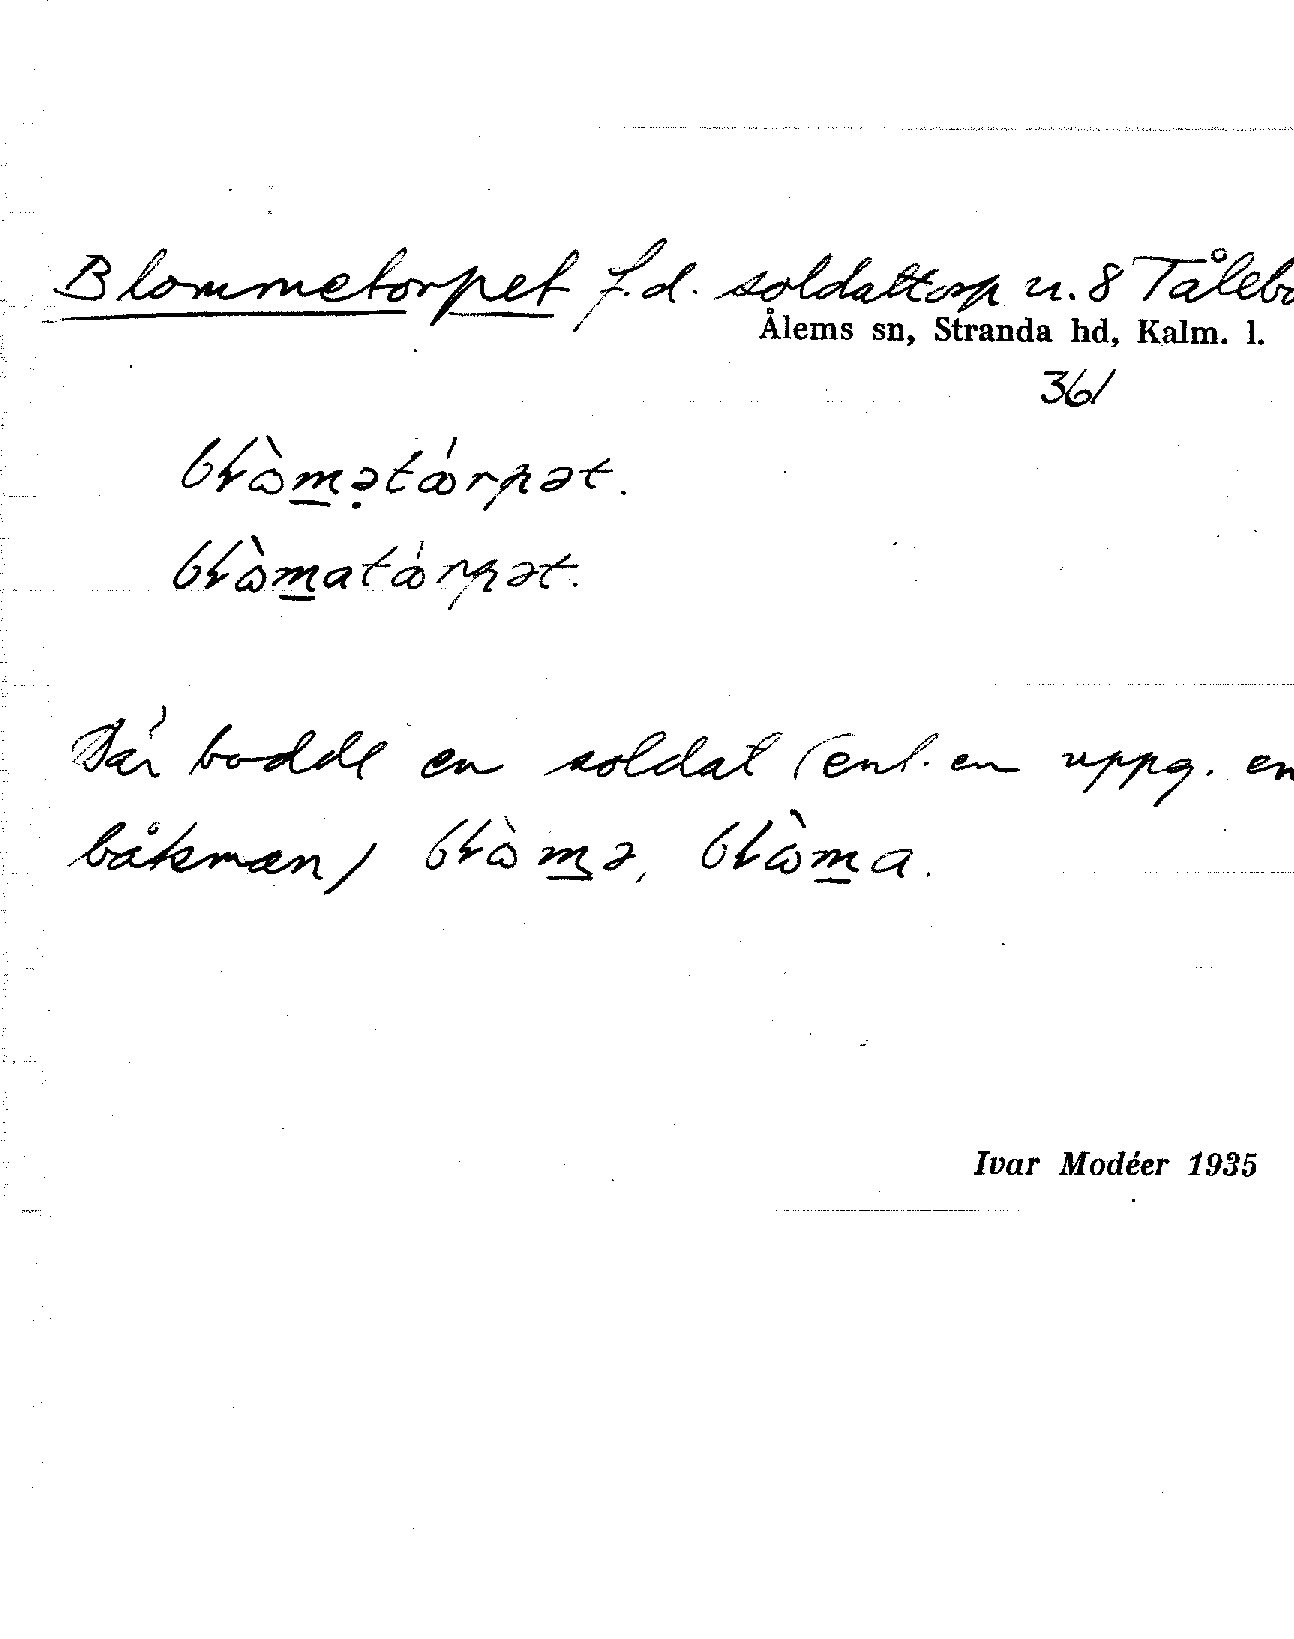 Blommetorpet f.d. soldattorp u. 8 Tålebo
Ålems sn, Stranda hd, Kalm. l.
361
Där bodde en soldat (enl. en uppg. en
båtsman)
Ivar Modéer 1935